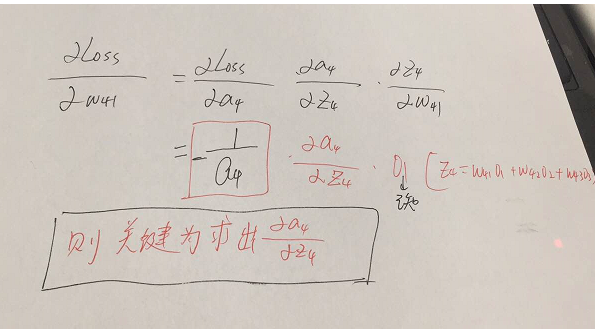 ∂Loss/∂w41 = ∂Loss/∂a4 · ∂a4/∂z4 · ∂z4/∂w41
= -1/a4 · ∂a4/∂z4 · O1 [z4=w41O1+w42O2+w43O3
已知
则关键为求出 ∂a4/∂z4